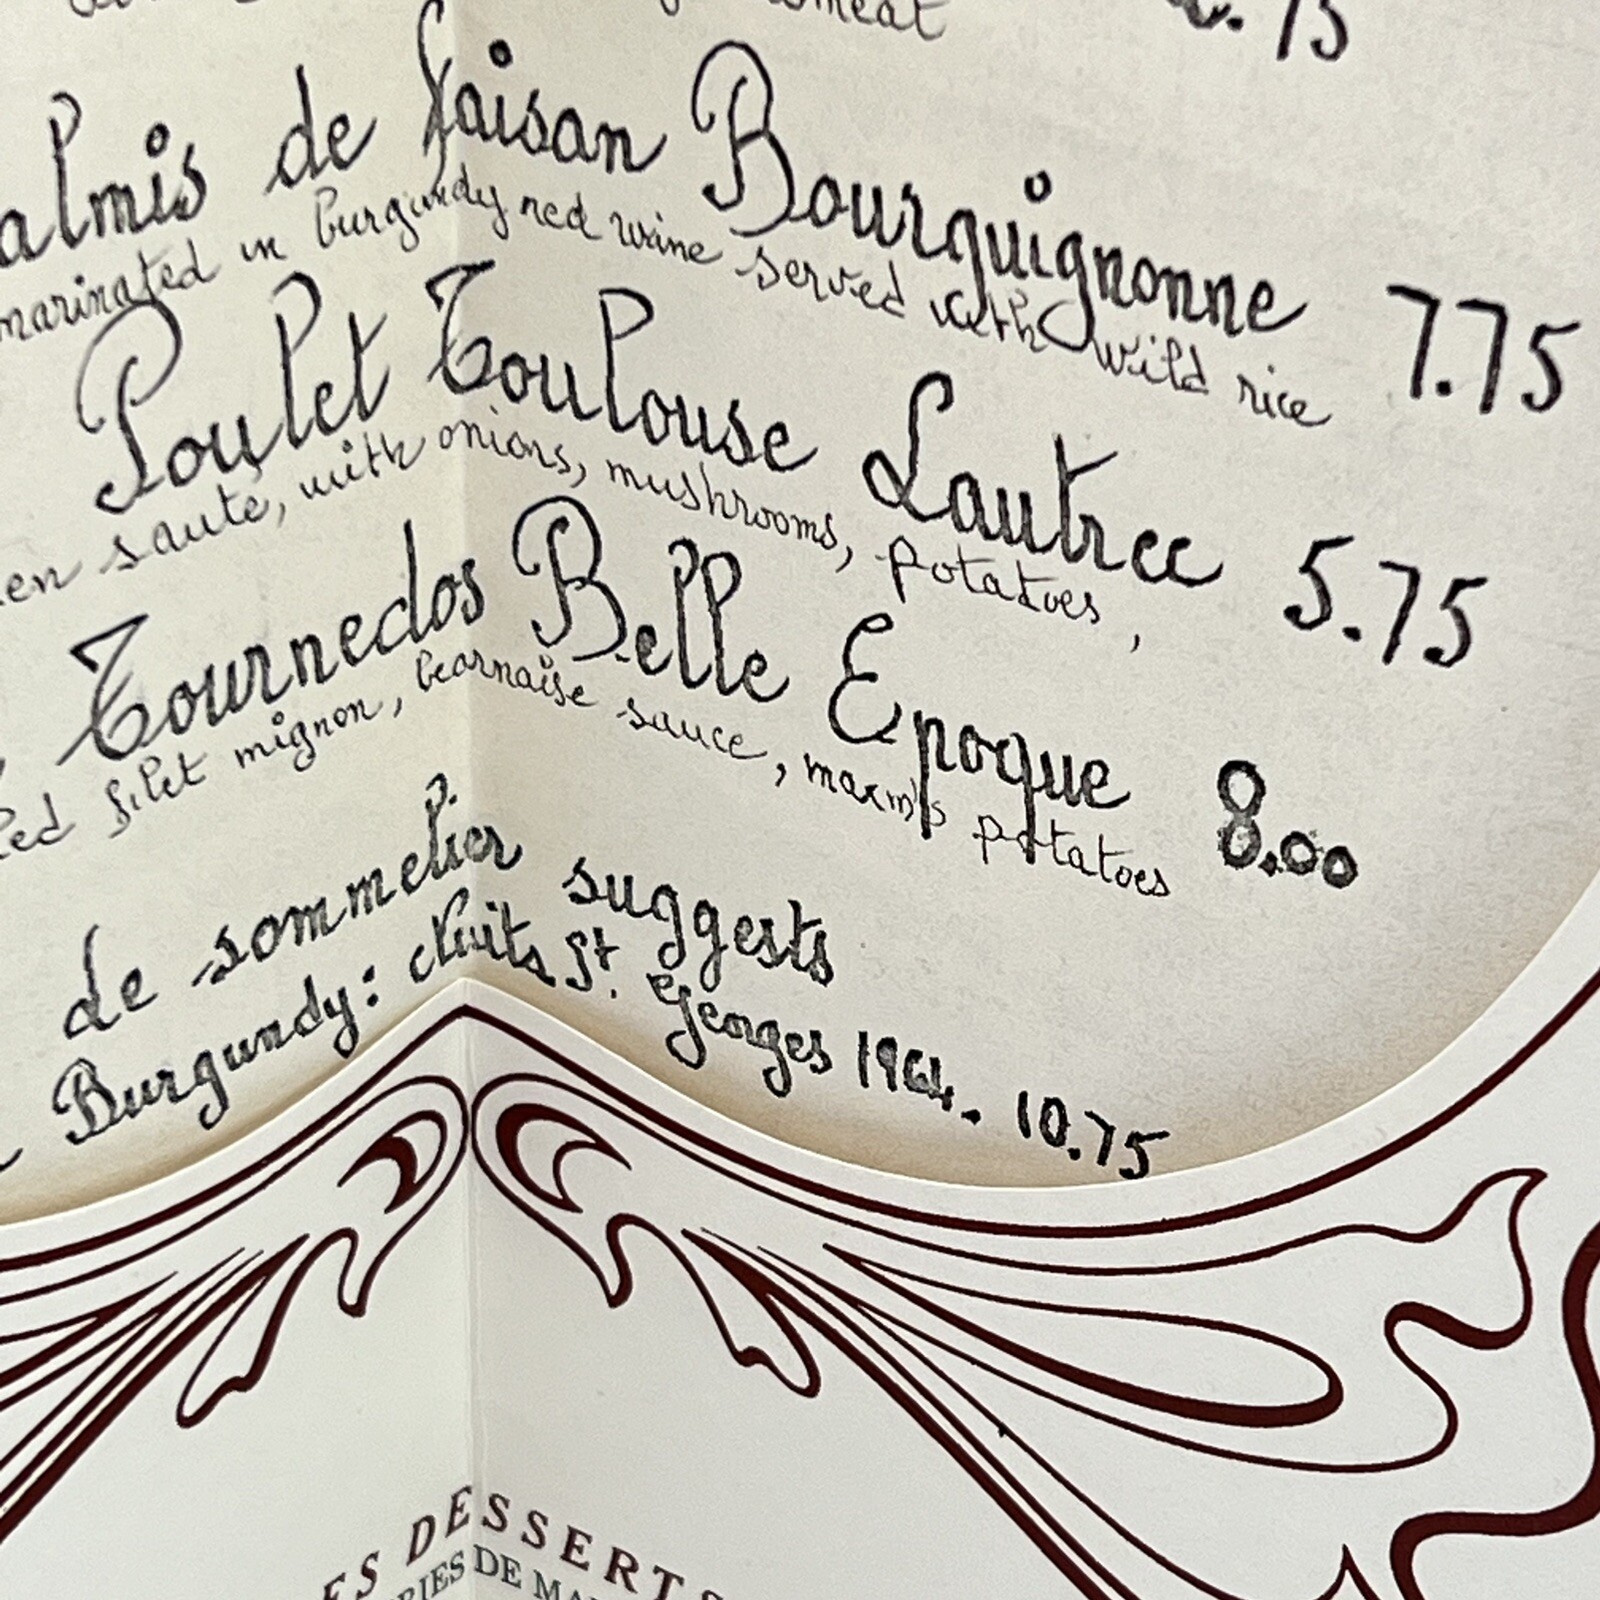 almis de faisan Bourguignonne 7.75
marinated in burgundy red wine served with wild rice
Poulet Toulouse Lautrec 5.75
en sauté, with onions, mushrooms, potatoes,
Tournedos Belle Epoque 8.00
led filet mignon, bearnaise sauce, maxm's potatoes
de sommelier suggests
Burgundy: Nuits St. Georges 1964. 10.75
ES DESSERTS
RIES DE MA